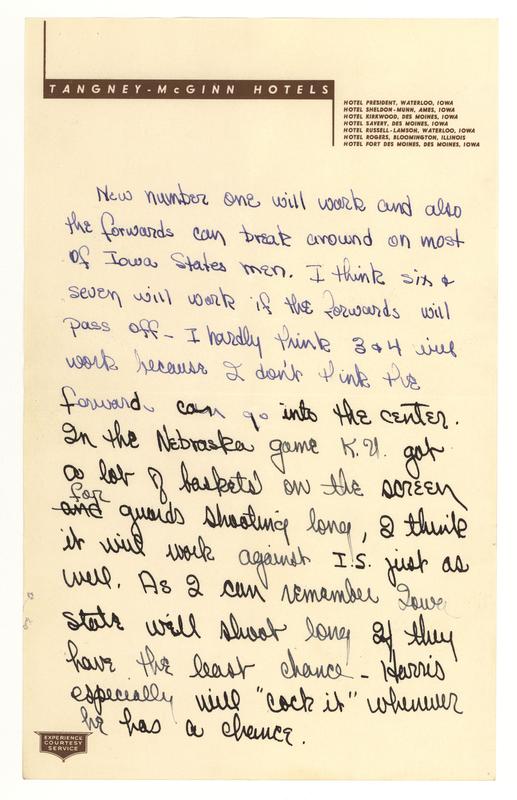 TANGNEY-McGINN HOTELS
HOTEL PRESIDENT, WATERLOO, IOWA
HOTEL SHELDON-MUNN, AMES, IOWA
HOTEL KIRKWOOD, DES MOINES, IOWA
HOTEL SAVERY, DES MOINES, IOWA
HOTEL RUSSELL-LAMSON, WATERLOO, IOWA
HOTEL ROGERS, BLOOMINGTON, ILLINOIS
HOTEL FORT DES MOINES, DES MOINES, IOWA
New number one will work and also
the forwards can break around on most
of Iowa States men. I think six &
seven will work if the forwards will
pass off - I hardly think 3 & 4 will
work because I don't think the
forwards can go into the center.
In the Nebraska game K.U. got
a lot of baskets on the screen
for
and guards shooting long, I think
it will work against I.S. just as
well. As I can remember Iowa
State will shoot long If they
have the least chance - Harris
especially will "cock it" whenever
he has a chance.
EXPERIENCE
COURTESY
SERVICE